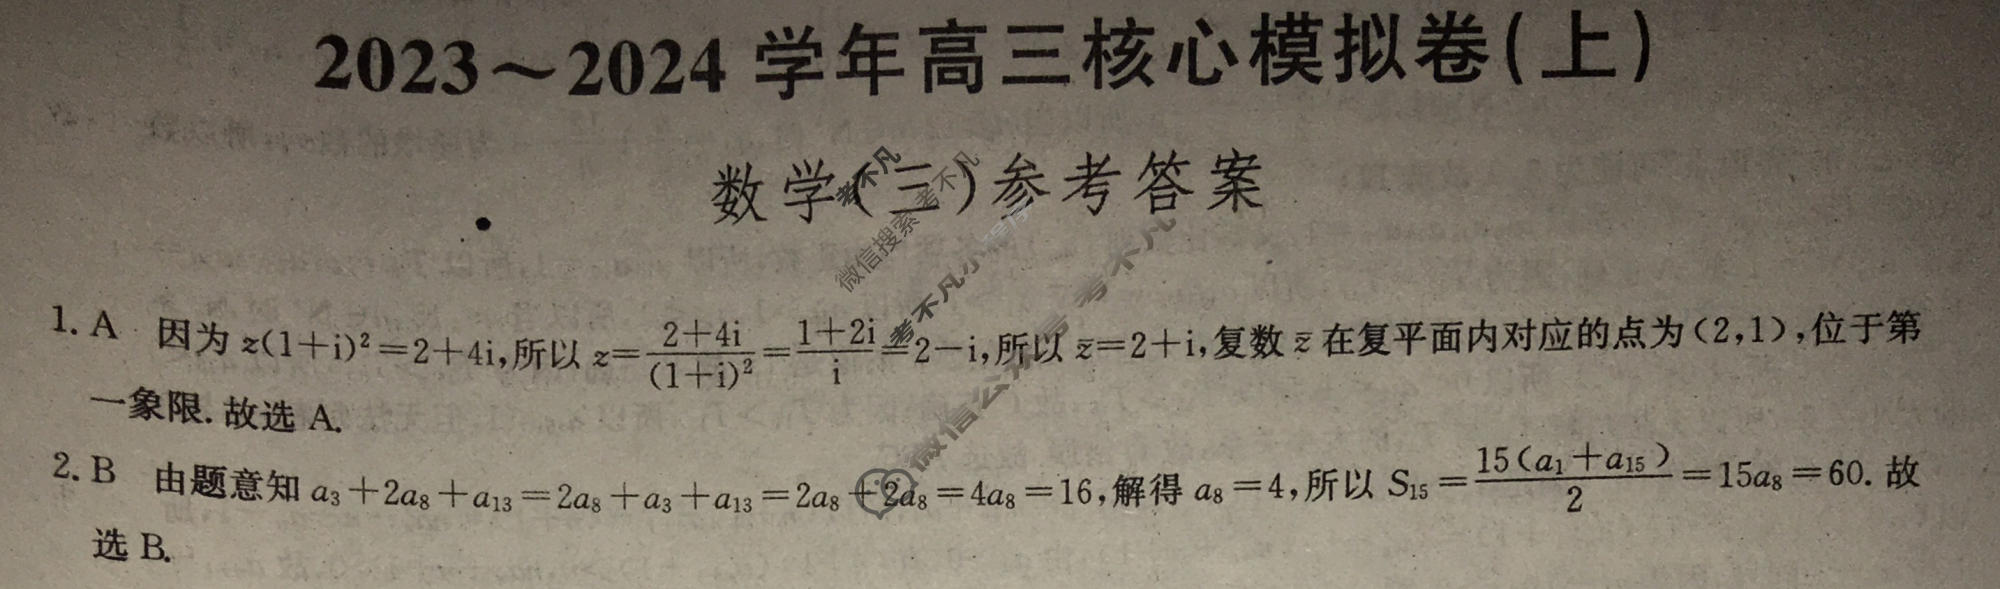 2023～2024 学年高三核心模拟卷(上)
数学(三)参考答案
1. A 因为 z(1+i)²=2+4i,所以 z=\frac{2+4i}{(1+i)²}=\frac{1+2i}{i}=2-i,所以 z̄=2+i,复数 z̄ 在复平面内对应的点为(2,1),位于第
一象限. 故选 A.
2. B 由题意知 a₃+2a₈+a₁₃=2a₈+a₃+a₁₃=2a₈+2a₈=4a₈=16,解得 a₈=4,所以 S₁₅=\frac{15(a₁+a₁₅)}{2}=15a₈=60. 故
选 B.
考不凡
微信搜索 考不凡
考不凡小程序
微信公众号 考不凡